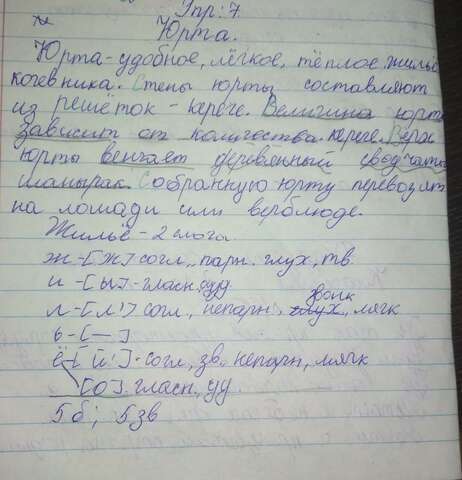 Упр: 7.
Юрта.
Юрта - удобное, лёгкое, тёплое жильё
кочевника. Стены юрты составляют
из решеток - кереге. Величина юрты
зависит от количества кереге. Верх
юрты венчает деревянный сводчатый
шанырак. Собранную юрту перевозят
на лошади или верблюде.
Жильё - 2 слога.
ж - [ж] согл, парн. глух, тв.
и - [ы] - гласн, уд
л - [л'] согл, непарн, звонк, мягк
ь - [—]
ё [й'] - согл, зв, непарн, мягк
[о]. гласн, уд
5 б; 5 зв